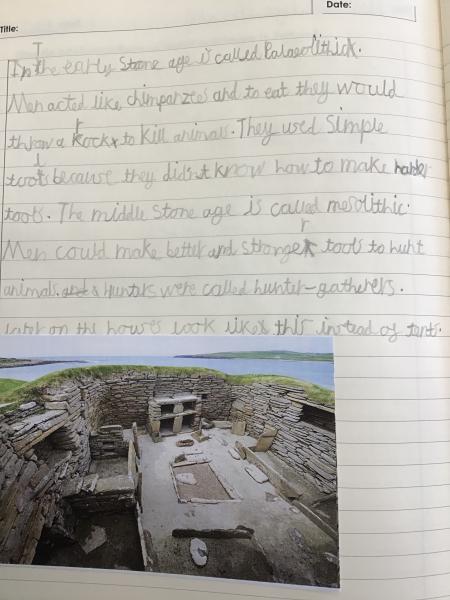 Title:
Date:
In the early Stone age is called Palaeolithick.
Men acted like chimpanzees and to eat they would
throw a rock to kill animals. They used Simple
tools because they didn't know how to make harder
tools. The middle Stone age is called mesolithic.
Men could make better and stronger tools to hunt
animals. hunters were called hunter-gatherers.
later on the houses look like this instead of tents.